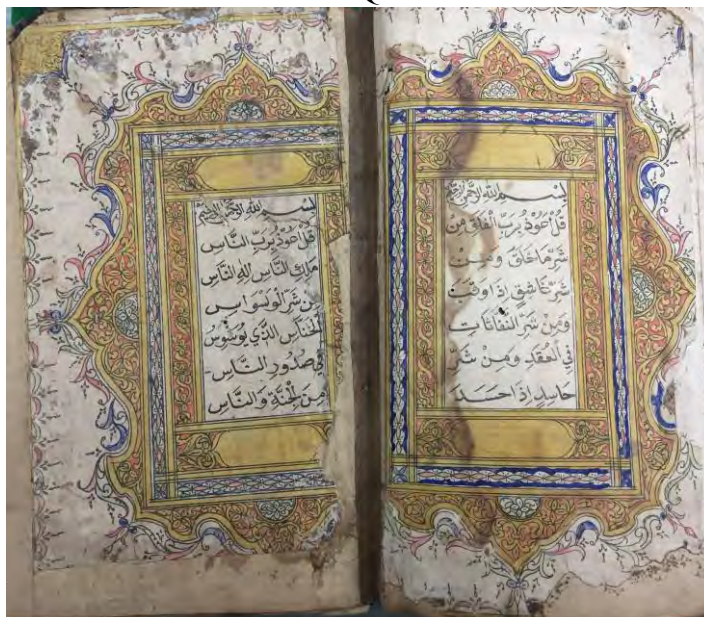 بِسْمِ اللهِ الرَّحْمٰنِ الرَّحِيْمِ
قُلْ اَعُوْذُ بِرَبِّ الْفَلَقِ مِنْ
شَرِّ مَا خَلَقَ وَمِنْ
شَرِّ غَاشِقٍ اِذَا وَقَبَ
وَمِنْ شَرِّ النَّفَاثَاتِ
فِي الْعُقَدِ وَمِنْ شَرِّ
حَاسِدٍ اِذَا حَسَدَ
بِسْمِ اللهِ الرَّحْمٰنِ الرَّحِيْمِ
قُلْ اَعُوْذُ بِرَبِّ النَّاسِ
مَلِكِ النَّاسِ اِلٰهِ النَّاسِ
مِنْ شَرِّ الْوَسْوَاسِ
الْخَنَّاسِ الَّذِيْ يُوَسْوِسُ
فِيْ صُدُوْرِ النَّاسِ
مِنَ الْجِنَّةِ وَالنَّاسِ